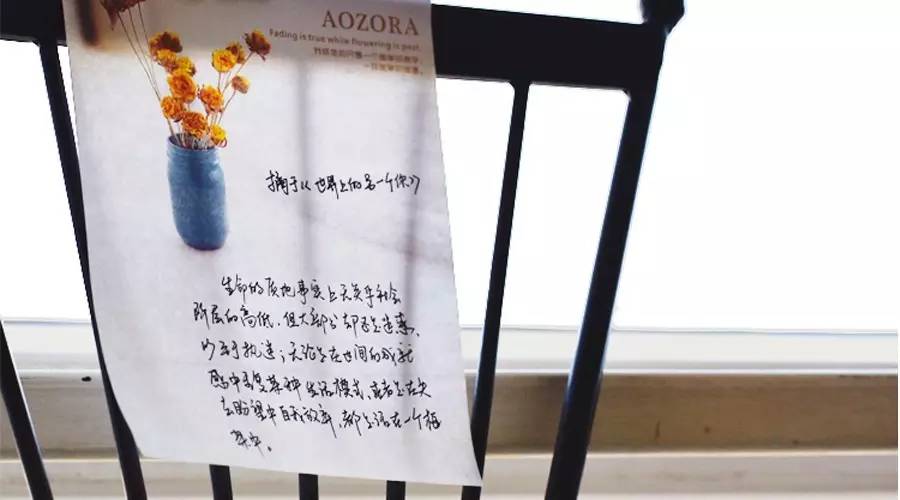 AOZORA
Fading is true while flowering is past.
摘于《世界上的另一个你》
生命的质地事实上无关乎社会
阶层的高低,但大部分却还是
以至于执迷;无论是在世间的成就
感中重复某种生活模式,或者是在失
去盼望中自我放弃,都是活在一个框
架中。